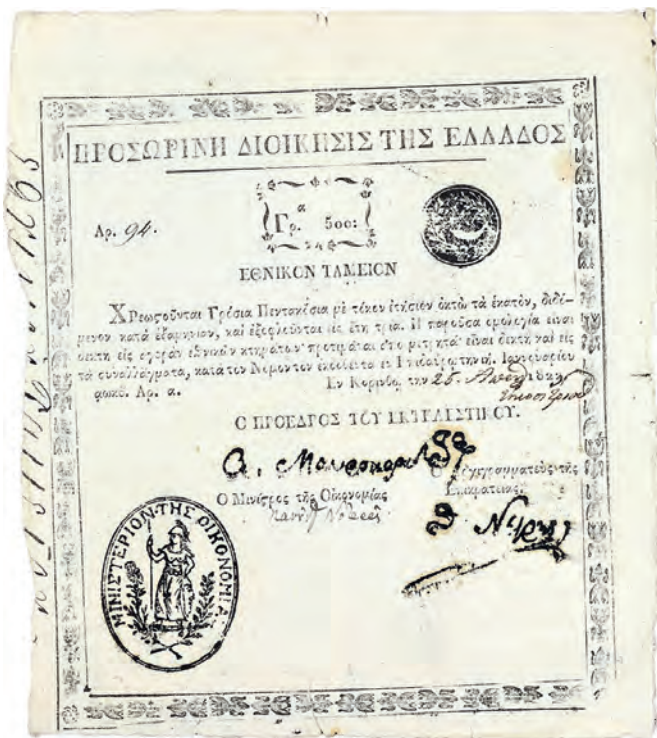 ΠΡΟΣΩΡΙΝΗ ΔΙΟΙΚΗΣΙΣ ΤΗΣ ΕΛΛΑΔΟΣ
Αρ. 94.
α
Γρ. 500:
ΕΘΝΙΚΟΝ ΤΑΜΕΙΟΝ
Χρεωςοῦνται Γρόσια Πεντακόσια μὲ τόκον ἐτήσιον ὀκτὼ τὰ ἑκατὸν, διδό-
μενον κατὰ ἑξαμηνίαν, καὶ ἐξοφλοῦνται εἰς ἔτη τρία. Η παροῦσα ὁμολογία εἶναι
δεκτὴ εἰς ἀγορὰν ἐθνικῶν κτημάτων· προτιμᾶται εἶναι δεκτὴ καὶ εἰς
τὰ συναλλάγματα, κατὰ τὸν Νόμον τὸν ἐκδοθέντα ἐν Επιδαύρῳ τὴν Ιαννουαρίου
αωκβ. Αρ. α. Εν Κορίνθῳ, τὴν 25.
Ο ΠΡΟΕΔΡΟΣ ΤΟΥ ΕΚΤΕΛΕΣΤΙΚΟΥ.
Α.
Ο Μινίςρος τῆς Οἰκονομίας
Ο Αρχιγραμματεὺς τῆς
Επικρατείας.
Θ Νέγρης
ΜΙΝΙΣΤΕΡΙΟΝ ΤΗΣ ΟΙΚΟΝΟΜΙΑΣ